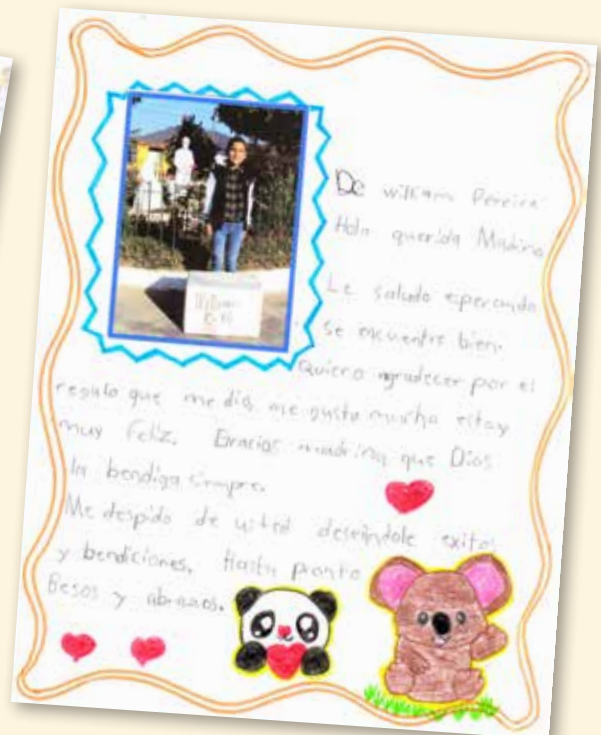 De william Pereira
Hola querida Madrina
Le saludo esperando
se encuentre bien.
Quiero agradecer por el
regalo que me dio, me gusto mucho estoy
muy feliz. Gracias madrina que Dios
la bendiga siempre.
Me despido de usted deseándole exitos
y bendiciones. Hasta pronto
Besos y abrazos.